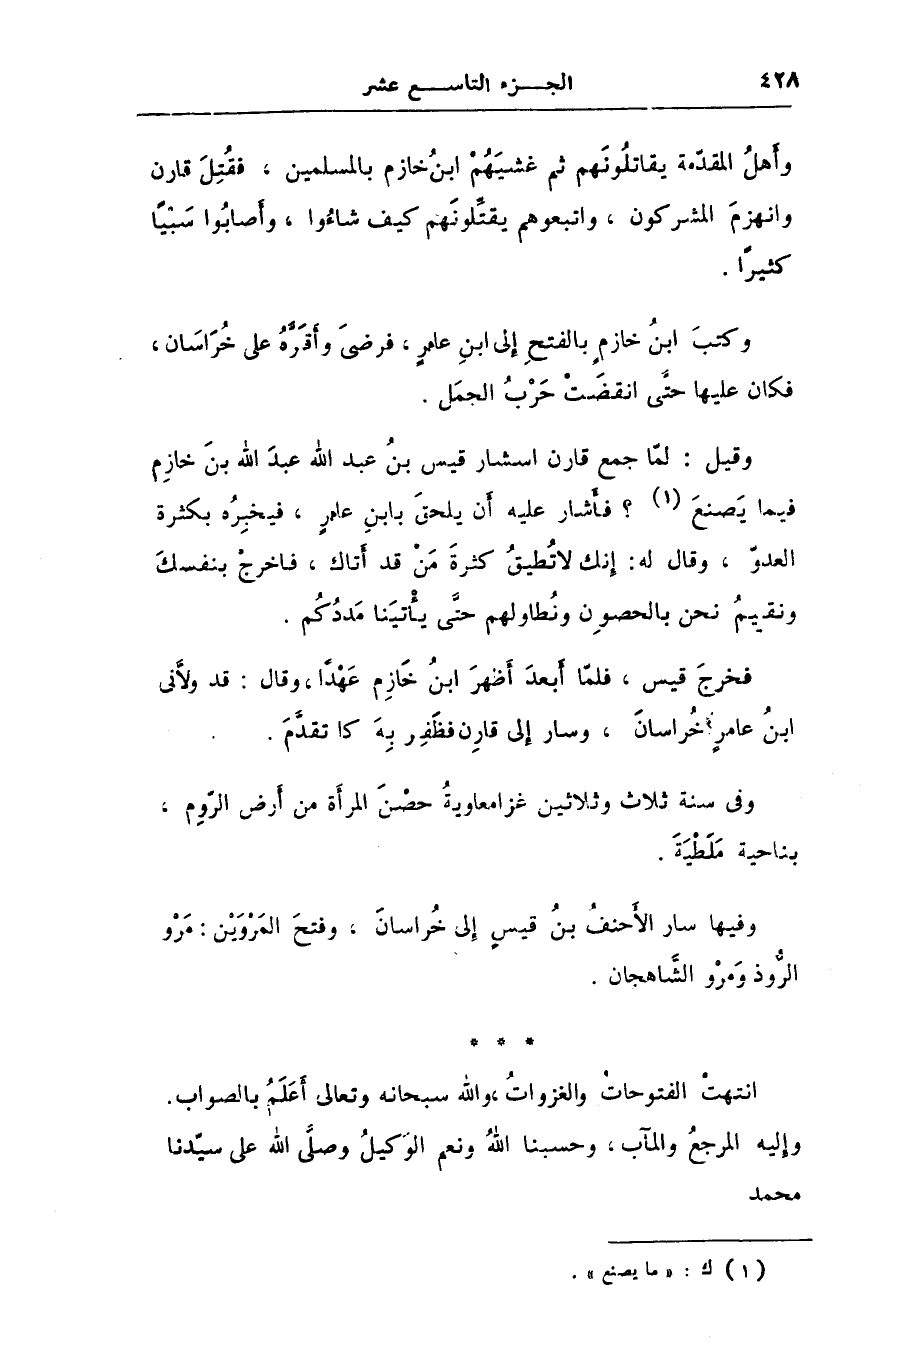 ٤٢٨
الجـــزء التاســـع عشر
وأَهلُ المقدّمة يقاتلُونَهم ثم غشيَهُمْ ابنُ خازم بالمسلمين ، فقُتِلَ قارن
وانهزمَ المشركون ، واتبعوهم يقتِّلونَهم كيف شاءُوا ، وأَصابُوا سَبْيًا
كثيرًا .
وكتبَ ابنُ خازمٍ بالفتحِ إلى ابنِ عامرٍ ، فرضىَ وأَقَرَّهُ على خُرَاسَان ،
فكان عليها حتَّى انقضَتْ حَرْبُ الجمَل .
وقيل : لمّا جمع قارن استشار قيس بنُ عبد الله عبدَ الله بنَ خازِم
فيما يَصنعَ (١) ؟ فأَشار عليه أن يلحقَ بابنِ عامرٍ ، فيخبِرُه بكثرة
العدوّ ، وقال له: إنك لاتُطيقُ كثرةَ مَنْ قد أَتاك ، فاخرجْ بنفسكَ
ونقيمُ نحن بالحصونِ ونُطاولهم حتَّى يأْتيَنا مَددُكُم .
فخرجَ قيس ، فلمّا أَبعدَ أَظهرَ ابنُ خَازِم عَهْدًا ، وقال : قد ولاَّنى
ابنُ عامرٍ خُراسانَ ، وسار إلى قارِن فظَفِر بِهَ كما تقدَّمَ .
وفى سنة ثلاث وثلاثين غزا معاويةُ حصْنَ المرأَة من أَرض الرّوم ،
بناحية مَلَطْيَةَ .
وفيها سار الأَحنفُ بنُ قيسٍ إلى خُراسانَ ، وفتحَ المَرْوَيْن : مَرْو
الرُّوذ وَمرْو الشَّاهجان .
* * *
انتهتْ الفتوحاتْ والغزواتُ ،والله سبحانه وتعالى أَعَلَمُ بالصواب.
وإليه المرجعُ والمآب ، وحسبنا اللهُ ونعم الوَكيلُ وصلَّى الله على سيّدنا
محمد
(١) ك : « ما يصنع » .